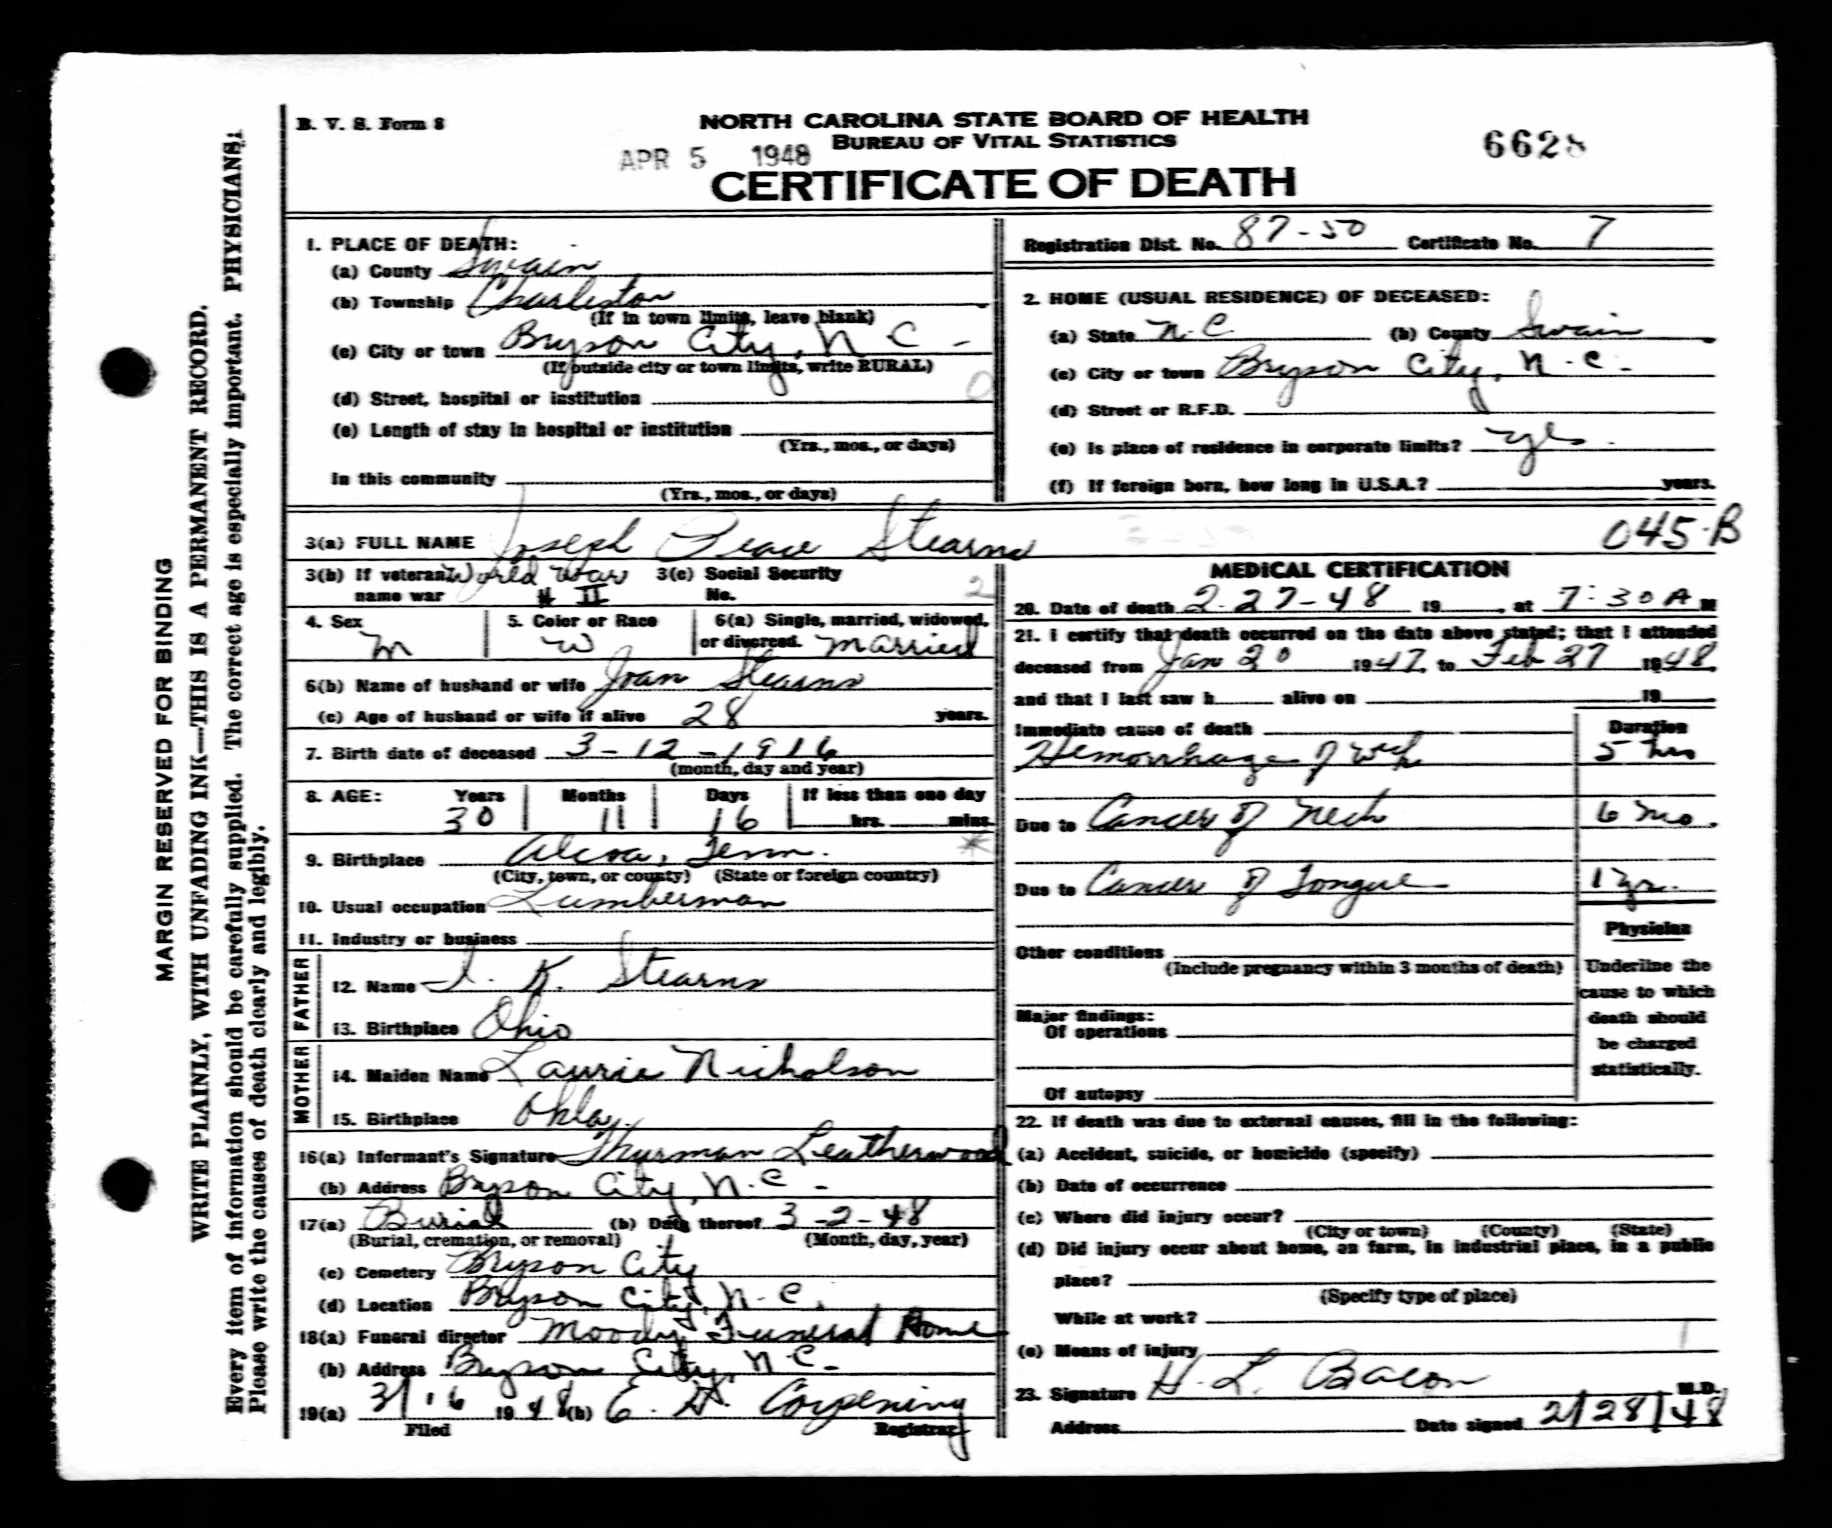 B. V. S. Form 8
NORTH CAROLINA STATE BOARD OF HEALTH
BUREAU OF VITAL STATISTICS
APR 5 1948
6628
CERTIFICATE OF DEATH
MARGIN RESERVED FOR BINDING
WRITE PLAINLY, WITH UNFADING INK—THIS IS A PERMANENT RECORD.
Every item of information should be carefully supplied. The correct age is especially important. PHYSICIANS:
Please write the causes of death clearly and legibly.
1. PLACE OF DEATH:
(a) County Swain
(b) Township Charleston
(If in town limits, leave blank)
(c) City or town Bryson City, N C -
(If outside city or town limits, write RURAL)
(d) Street, hospital or institution 0
(e) Length of stay in hospital or institution
(Yrs., mos., or days)
In this community
(Yrs., mos., or days)
Registration Dist. No. 87-50 Certificate No. 7
2. HOME (USUAL RESIDENCE) OF DECEASED:
(a) State N.C. (b) County Swain
(c) City or town Bryson City, N.C.
(d) Street or R.F.D.
(e) Is place of residence in corporate limits? yes.
(f) If foreign born, how long in U.S.A.? years.
3(a) FULL NAME Joseph Peace Stearns
045-B
3(b) If veteran name war World War # II 3(c) Social Security No. 2
4. Sex M
5. Color or Race W
6(a) Single, married, widowed, or divorced. Married
6(b) Name of husband or wife Joan Stearns
(c) Age of husband or wife if alive 28 years.
7. Birth date of deceased 3-12-1916
(month, day and year)
8. AGE: Years Months Days If less than one day
30 11 16 hrs. mins.
9. Birthplace Alcoa, Tenn. *
(City, town, or county) (State or foreign country)
10. Usual occupation Lumberman
11. Industry or business
FATHER
12. Name I. K. Stearns
13. Birthplace Ohio
MOTHER
14. Maiden Name Laurie Nicholson
15. Birthplace Okla.
16(a) Informant's Signature Thurman Leatherwood
(b) Address Bryson City, N.C. -
17(a) Burial (b) Date thereof 3-2-48
(Burial, cremation, or removal) (Month, day, year)
(c) Cemetery Bryson City
(d) Location Bryson City, N.C.
18(a) Funeral director Moody Funeral Home
(b) Address Bryson City, N.C.
19(a) 3/16 1948 (b) E. H. Corpening
Filed Registrar
MEDICAL CERTIFICATION
20. Date of death 2-27-48 19 , at 7:30 A M
21. I certify that death occurred on the date above stated; that I attended
deceased from Jan 20 1947, to Feb 27 1948.
and that I last saw h alive on 19
Immediate cause of death Duration
Hemorrhage of neck 5 hrs
Due to Cancer of Neck 6 mo.
Due to Cancer of Tongue 1 yr.
Other conditions
(Include pregnancy within 3 months of death)
Major findings:
Of operations
Of autopsy
Physician
Underline the
cause to which
death should
be charged
statistically.
22. If death was due to external causes, fill in the following:
(a) Accident, suicide, or homicide (specify)
(b) Date of occurrence
(c) Where did injury occur?
(City or town) (County) (State)
(d) Did injury occur about home, on farm, in industrial place, in a public
place?
(Specify type of place)
While at work?
(e) Means of injury
23. Signature H. L. Bacon M.D.
Address Date signed 2/28/48